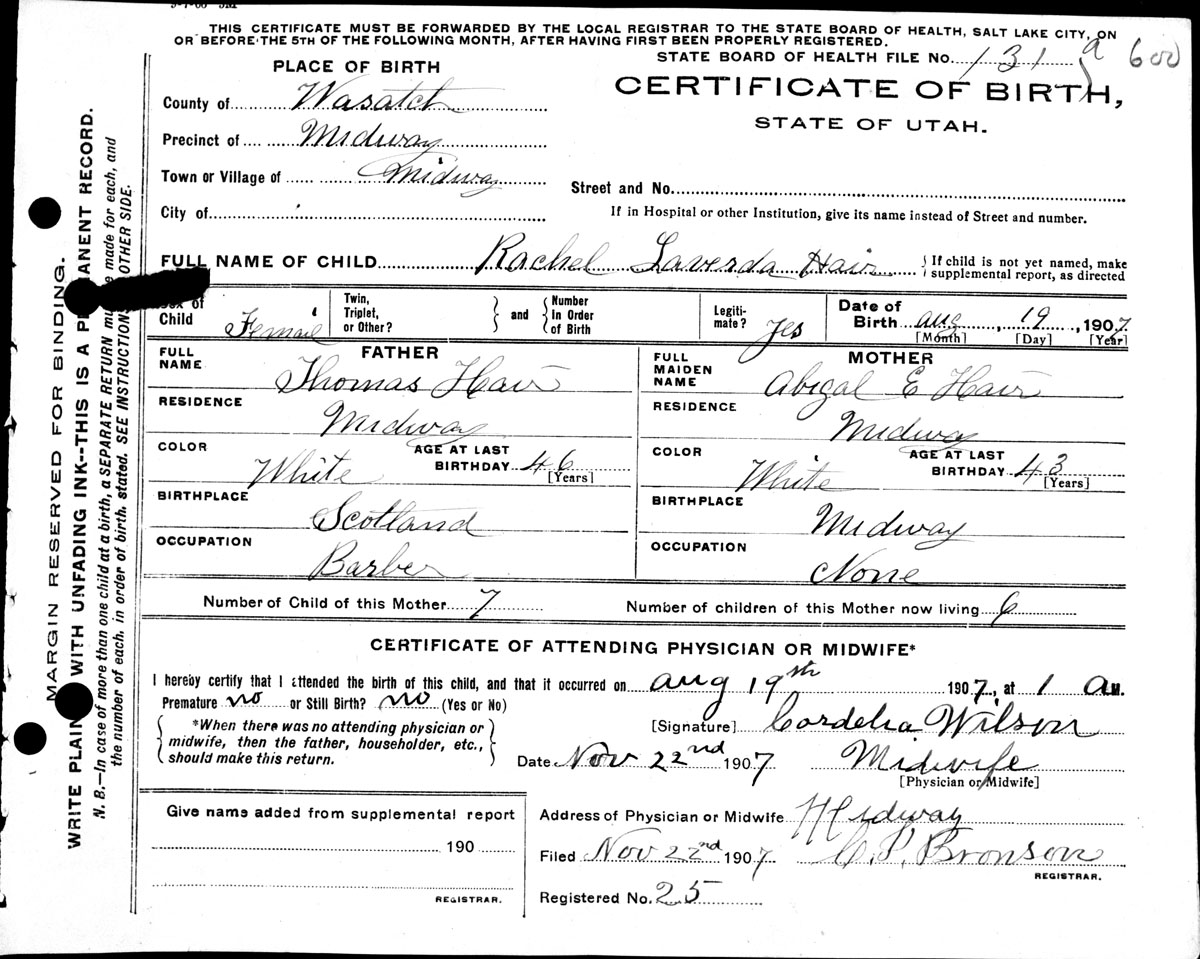 THIS CERTIFICATE MUST BE FORWARDED BY THE LOCAL REGISTRAR TO THE STATE BOARD OF HEALTH, SALT LAKE CITY, ON
OR BEFORE THE 5TH OF THE FOLLOWING MONTH, AFTER HAVING FIRST BEEN PROPERLY REGISTERED.
STATE BOARD OF HEALTH FILE No. 131 a 600
PLACE OF BIRTH
CERTIFICATE OF BIRTH,
STATE OF UTAH.
County of Wasatch
Precinct of Midway
Town or Village of Midway
Street and No.
City of
If in Hospital or other Institution, give its name instead of Street and number.
FULL NAME OF CHILD Rachel Laverda Hair
{If child is not yet named, make
supplemental report, as directed
Sex of
Child Female
Twin,
Triplet,
or Other?
} and {
Number
In Order
of Birth
Legiti-
mate? Yes
Date of
Birth aug, 19, 1907.
[Month] [Day] [Year]
FATHER
FULL
NAME
Thomas Hair
RESIDENCE
Midway
COLOR
White
AGE AT LAST
BIRTHDAY 46
[Years]
BIRTHPLACE
Scotland
OCCUPATION
Barber
MOTHER
FULL
MAIDEN
NAME
Abigal E Hair
RESIDENCE
Midway
COLOR
White
AGE AT LAST
BIRTHDAY 43
[Years]
BIRTHPLACE
Midway
OCCUPATION
None
Number of Child of this Mother 7 Number of children of this Mother now living 6
CERTIFICATE OF ATTENDING PHYSICIAN OR MIDWIFE*
I hereby certify that I attended the birth of this child, and that it occurred on aug 19th 1907, at 1 a M.
Premature no or Still Birth? no (Yes or No)
{*When there was no attending physician or
midwife, then the father, householder, etc.,
should make this return.}
[Signature] Cordelia Wilson
Date Nov 22nd 1907 Midwife
[Physician or Midwife]
Give name added from supplemental report
190
REGISTRAR.
Address of Physician or Midwife Midway
Filed Nov 22nd 1907 C. P. Bronson
REGISTRAR.
Registered No. 25
MARGIN RESERVED FOR BINDING.
WRITE PLAIN WITH UNFADING INK--THIS IS A PERMANENT RECORD.
N. B.—In case of more than one child at a birth, a SEPARATE RETURN must be made for each, and
the number of each, in order of birth, stated. SEE INSTRUCTIONS OTHER SIDE.